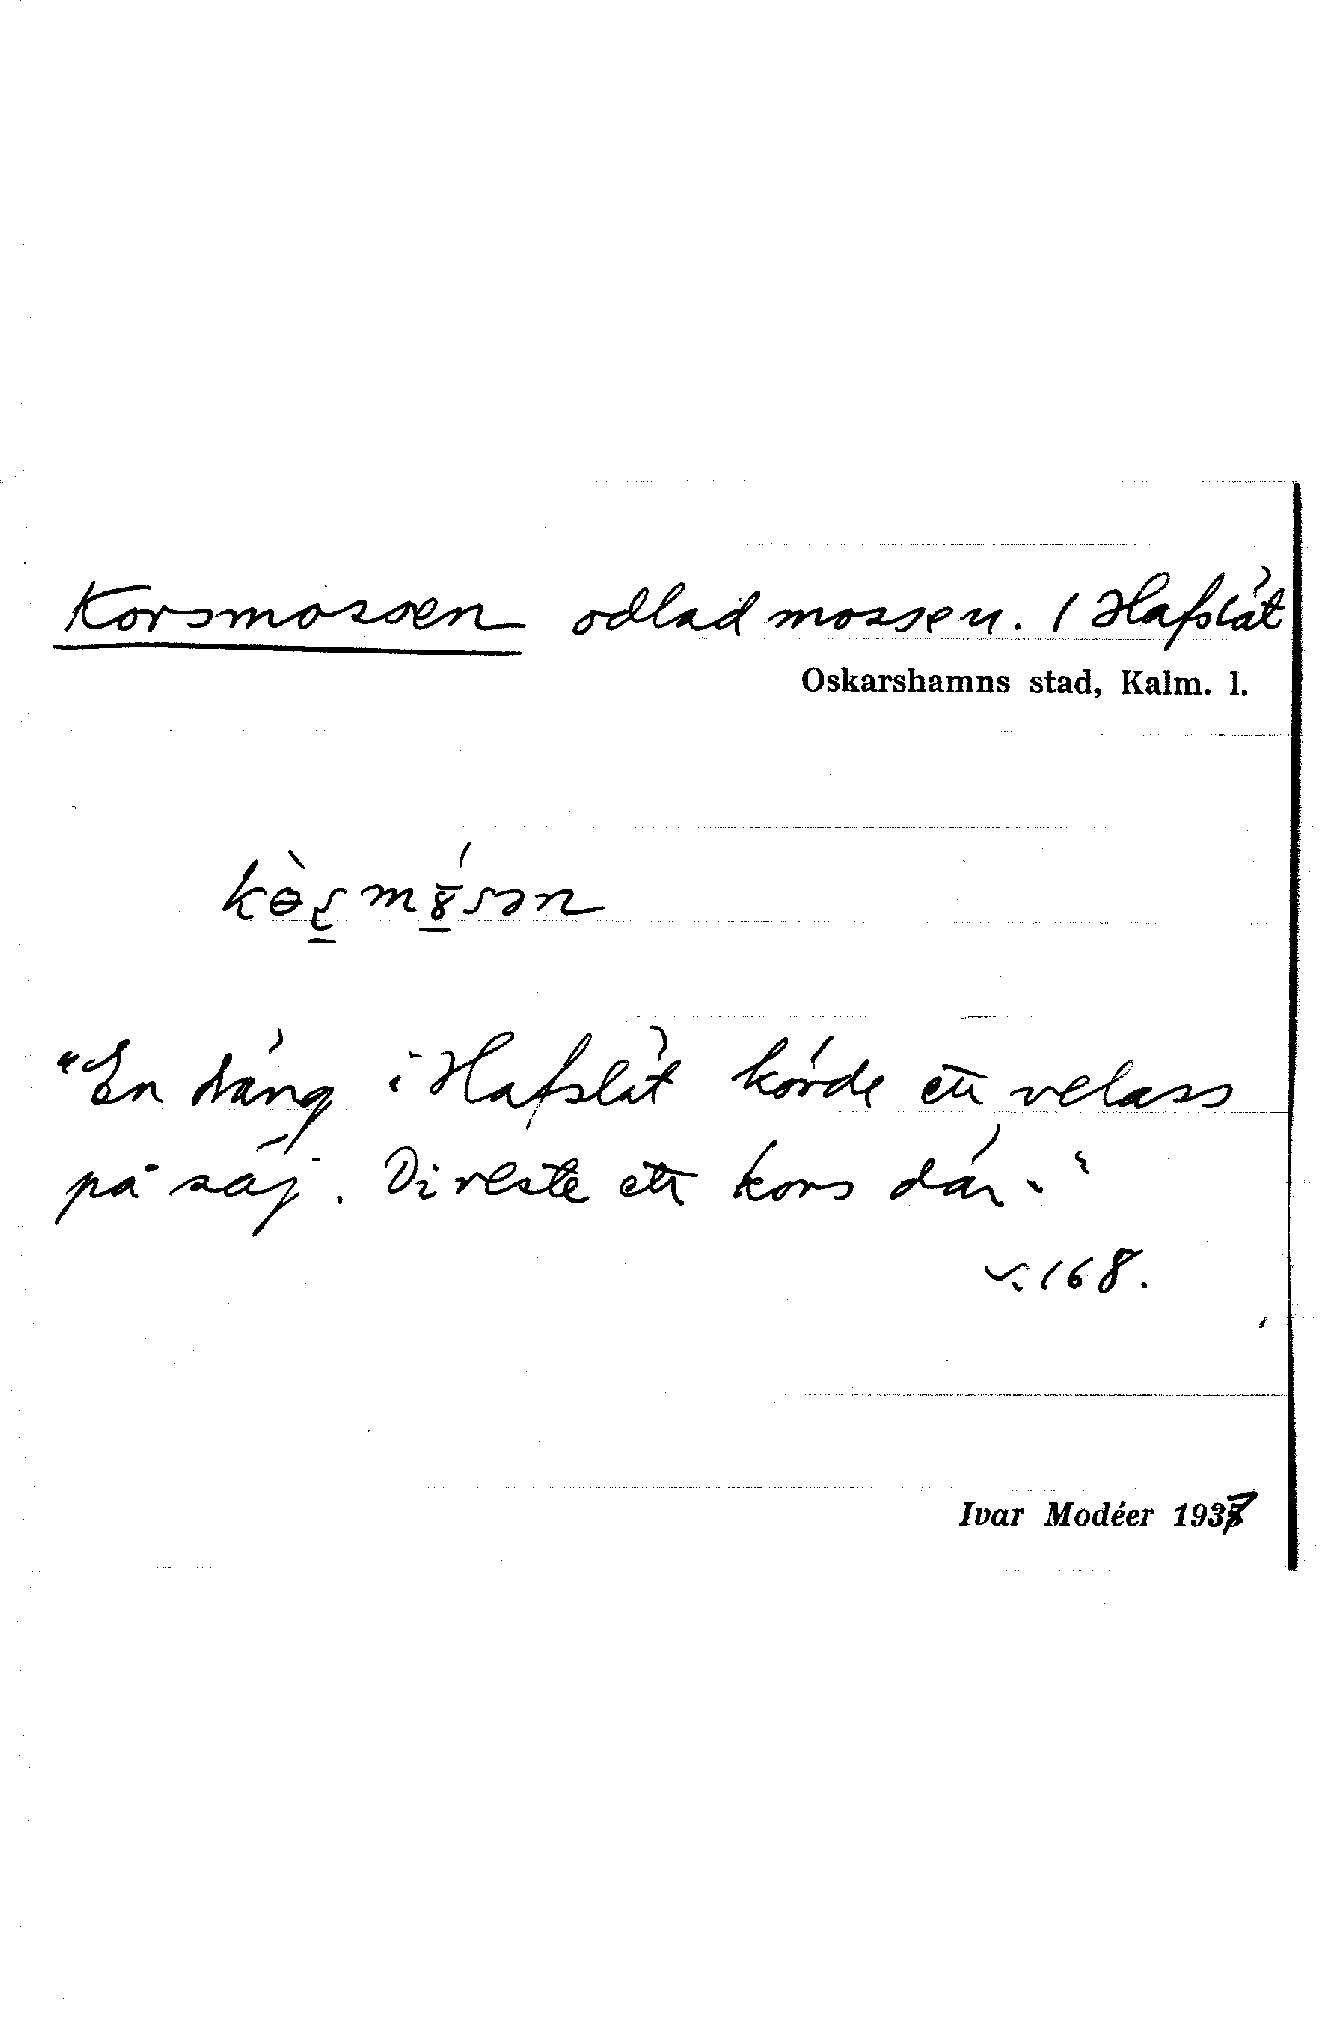 Korsmossen odlad mossen. / Hafslät
Oskarshamns stad, Kalm. l.
"En dräng i Hafslät körde ett velass
på säj. Di reste ett kors där."
s. 168.
Ivar Modéer 1937